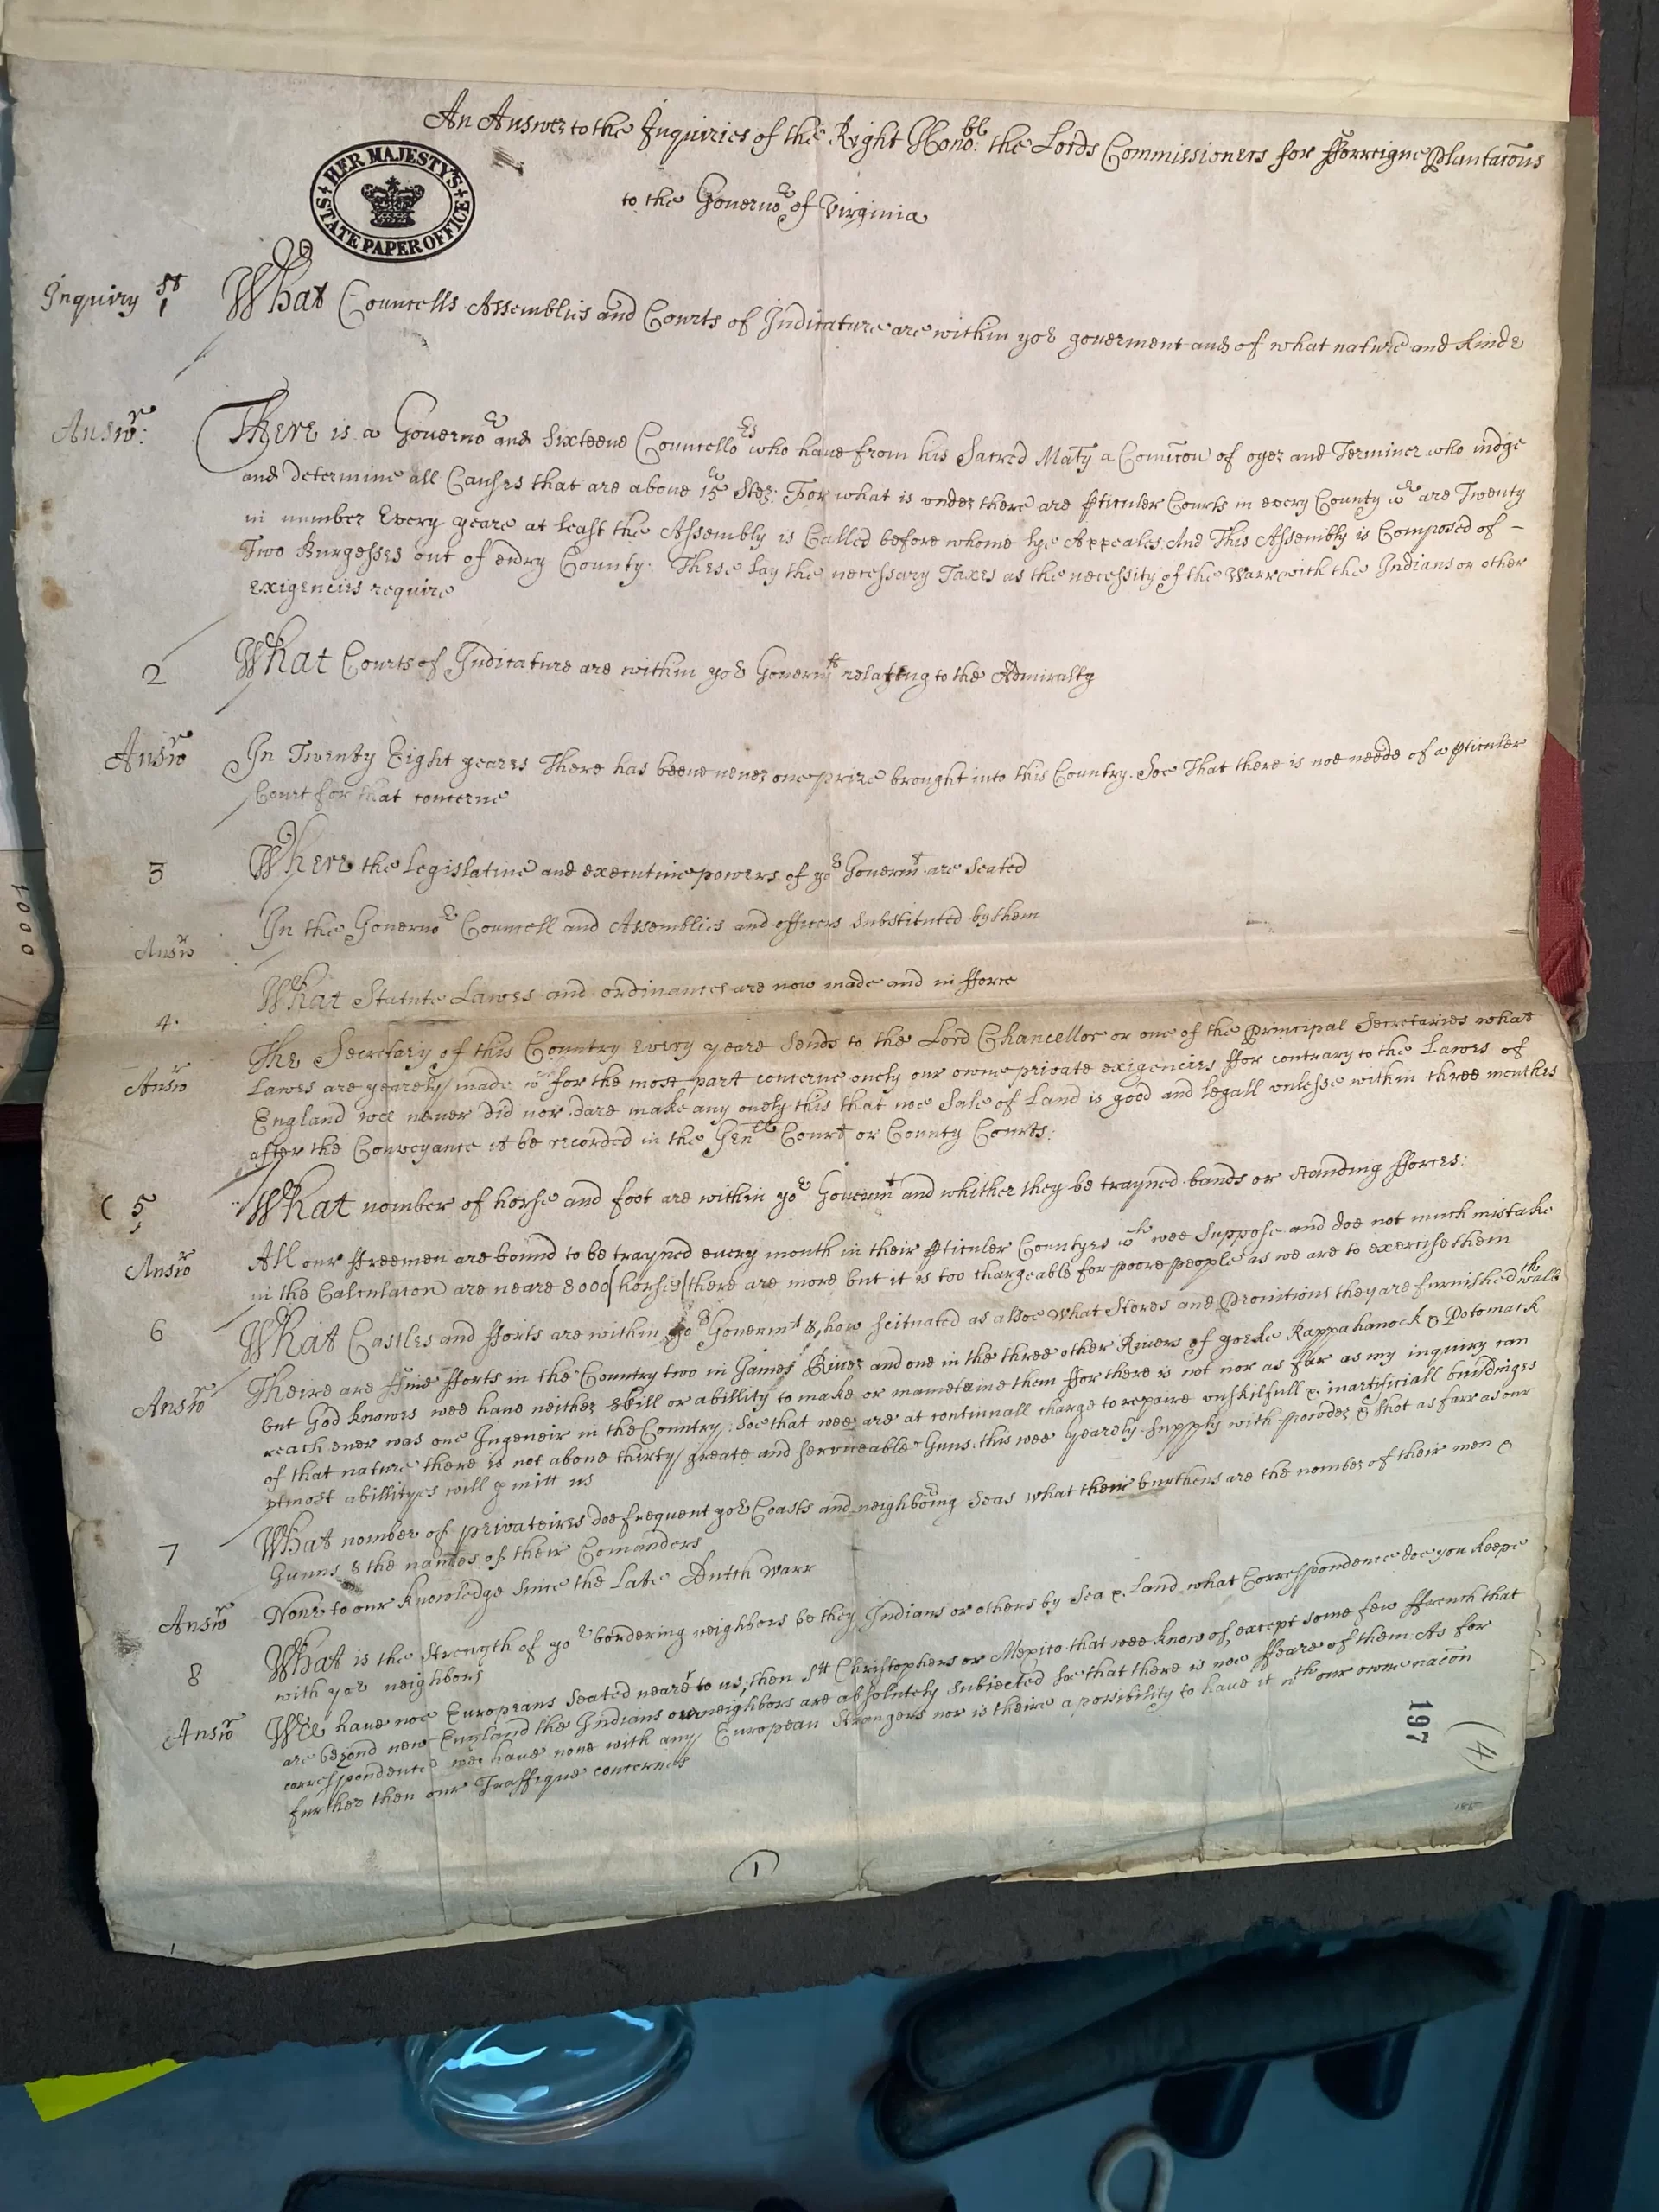 An Answer to the Inquiries of the Right Hono:ble the Lords Commissioners for fforreigne Plantacõns
to the Governor of Virginia
HER MAJESTY'S
STATE PAPER OFFICE
Inquiry 1st What Councells Assemblies and Courts of Judicature are within yor goverment and of what nature and kinde
Answr: There is a Governor and Sixteene Councellors who have from his Sacred Maty a Comicõn of oyer and Terminer who iudge
and determine all Causes that are above 15 Ster: For what is under there are pticuler Courts in every County wch are Twenty
in number Every yeare at least the Assembly is Called before whome lye Appeales And This Assembly is Composed of -
Two Burgesses out of every County. These lay the necessary Taxes as the necessity of the Warr with the Indians or other
exigencies require
2 What Courts of Judicature are within yor Govermt relateing to the Admiralty
Answr In Twenty Eight yeares There has beene never one prize brought into this Country. Soe That there is noe neede of a pticuler
Court for that concerne
3 Where the Legislative and executive powers of yor Govermt are Seated
Answr In the Governor Councell and Assemblies and officers Substituted by them
4. What Statute Lawes and ordinances are now made and in fforce
Answr The Secretary of this Country every yeare Sends to the Lord Chancellor or one of the Principal Secretaries what
Lawes are yearely made wch for the most part concerne onely our owne private exigencies ffor contrary to the Lawes of
England wee never did nor dare make any onely this that noe Sale of Land is good and legall unlesse within three months
after the Conveyance it be recorded in the Genll Court or County Courts:
5 What nomber of horse and foot are within yor Govermt and whither they be trayned bands or standing fforces:
Answr All our ffreemen are bound to be trayned every month in their pticuler Countyes wch wee Suppose and doe not much mistake
in the Calculacon are neare 8000 horse there are more but it is too chargeable for poore people as we are to exercise them
6 What Castles and fforts are within yor Govermt & how scituated as alsoe what Stores and Provitions they are furnished wthall
Answr Theire are ffive fforts in the Country two in James River and one in the three other Rivers of yorke Rappahanock & Potomack
but God knowes wee have neither skill or abillity to make or maintaine them ffor there is not nor as far as my inquiry can
reach ever was one Ingeneir in the Country, Soe that wee are at continuall charge to repaire unskilfull & inartificiall buildinges
of that nature there is not above thirty greate and serviceable Guns this wee yearely Supply with powder & shot as farr as our
utmost abillityes will pmitt us
7 What nomber of privateires doe frequent yor Coasts and neighboring Seas what their burthens are the nomber of their men &
Gunns & the names of their Comanders
Answr None to our knowledge since the Late Dutch Warr
8 What is the Strength of yor bordering neighbors be they Indians or others by Sea & Land what Correspondence doe you keepe
with yor neighbors
Answr Wee have noe Europeans Seated neare to us, then St Christophers or Mexico that wee know of, except some few ffrench that
are beyond new England the Indians our neighbors are absolutely Subjected soe that there is noe ffeare of them As for
correspondence wee have none with any European Strangers nor is theire a possibility to have it wth our owne nacõn
further then our Traffique concernes
197
(4)
1
10001